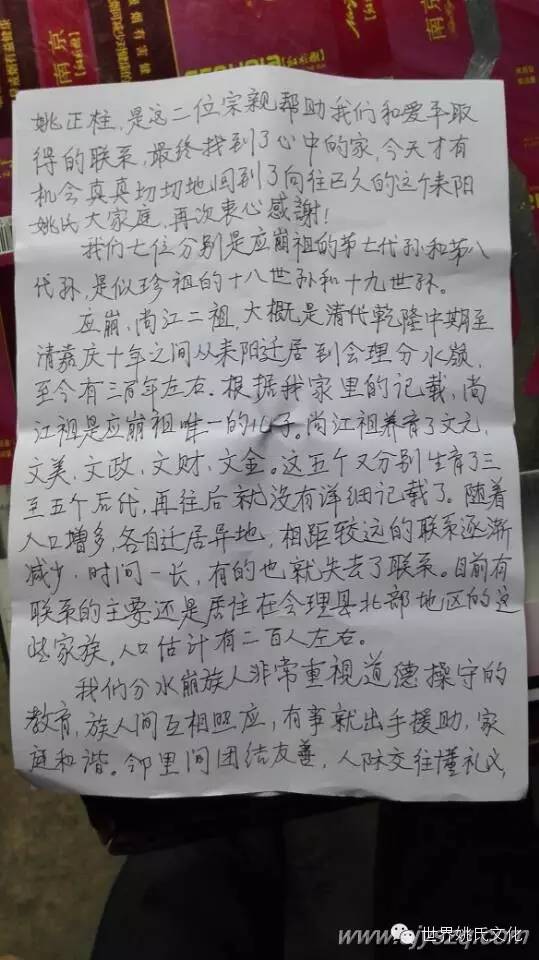 南京
南京
姚正柱,是这二位宗亲帮助我们和爱平取
得的联系,最终找到了心中的家,今天才有
机会真真切切地回到了向往已久的这个耒阳
姚氏大家庭,再次衷心感謝!
我们七位分别是应崩祖的第七代孙和第八
代孙,是似珍祖的十八世孙和十九世孙。
应崩、尚江二祖,大概是清代乾隆中期至
清嘉庆十年之间从耒阳迁居到会理分水嶺,
至今有三百年左右。根据我家里的记载,尚
江祖是应崩祖唯一的儿子。尚江祖养育了文元,
文美,文政,文财,文金。这五个又分别生育了三
至五个后代,再往后就没有详细记载了。随着
人口增多,各自迁居异地,相距较远的联系逐渐
减少,时间一长,有的也就失去了联系。目前有
联系的主要还是居住在会理县北部地区的这
些家族,人口估计有二百人左右。
我们分水崩族人非常重视道德操守的
教育,族人间互相照应,有事就出手援助,家
庭和谐。邻里间团结友善,人际交往懂礼义,
世界姚氏文化